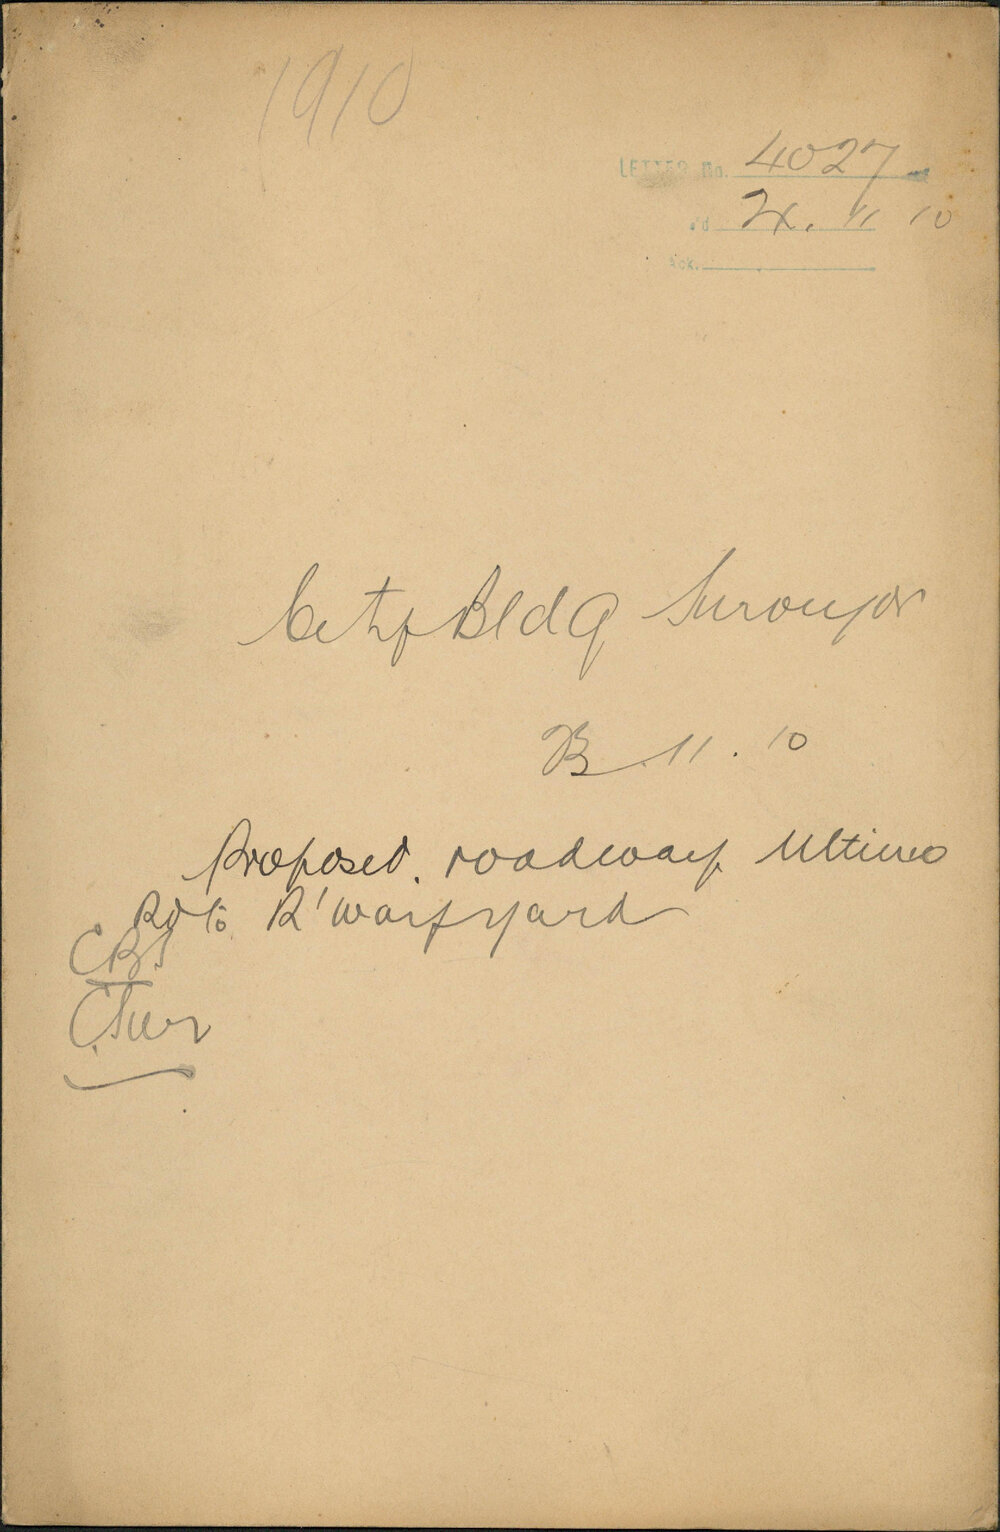 1910
LETTER No. 4027
'd 24. 11 10
Ack.
City Bldg Surveyor
23. 11. 10
Proposed roadway Ultimo
Rd to R'way yard
CBS
C. Sur